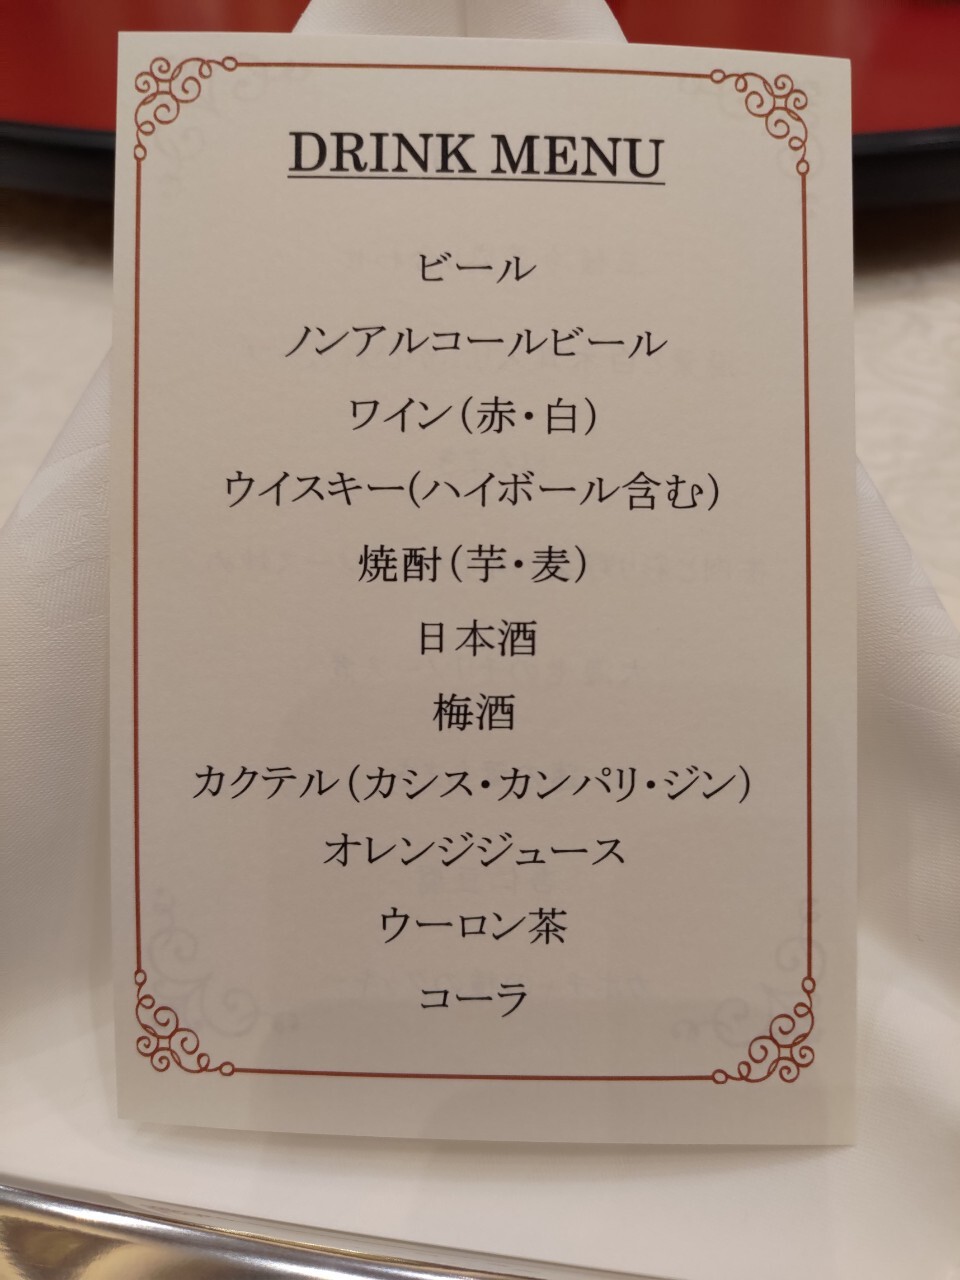 DRINK MENU
ビール
ノンアルコールビール
ワイン(赤・白)
ウイスキー(ハイボール含む)
焼酎(芋・麦)
日本酒
梅酒
カクテル(カシス・カンパリ・ジン)
オレンジジュース
ウーロン茶
コーラ